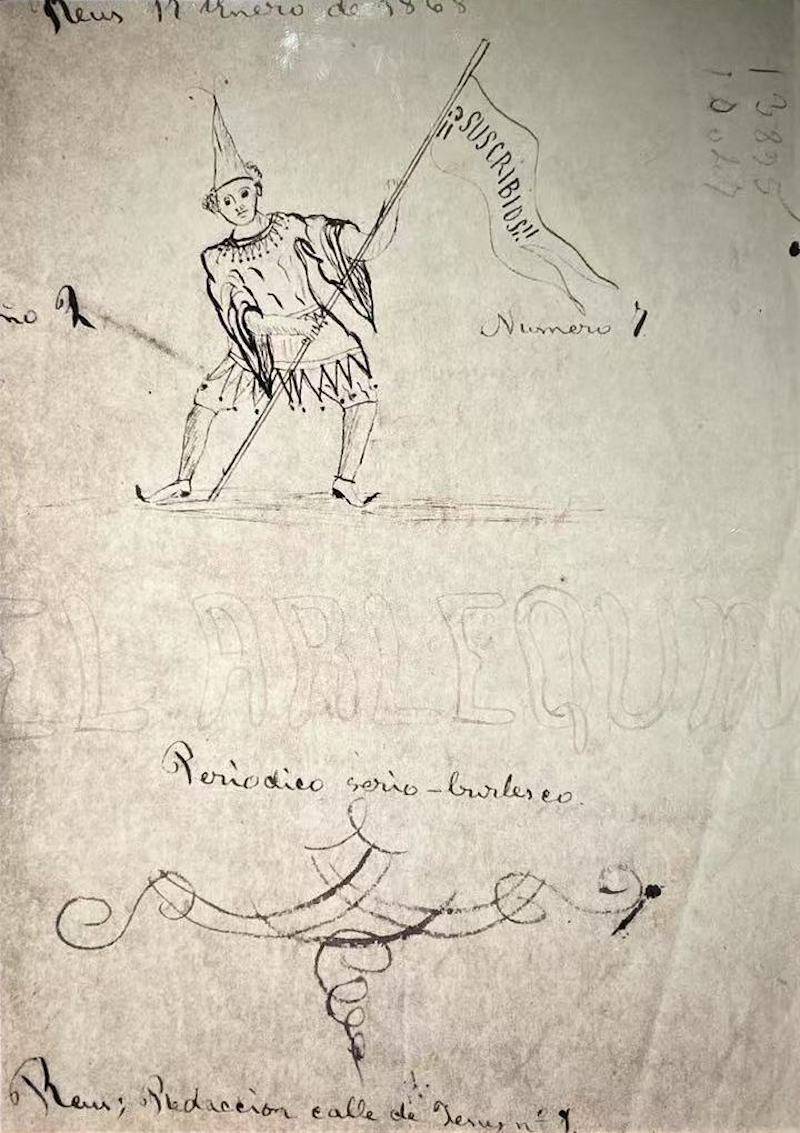 Reus 17 Enero de 1868
¡¡SUSCRIBIOS!!
ño
Numero
EL ARLEQUIN
Periodico serio-burlesco.
Reus; Redaccion calle de Jesus nº 1.